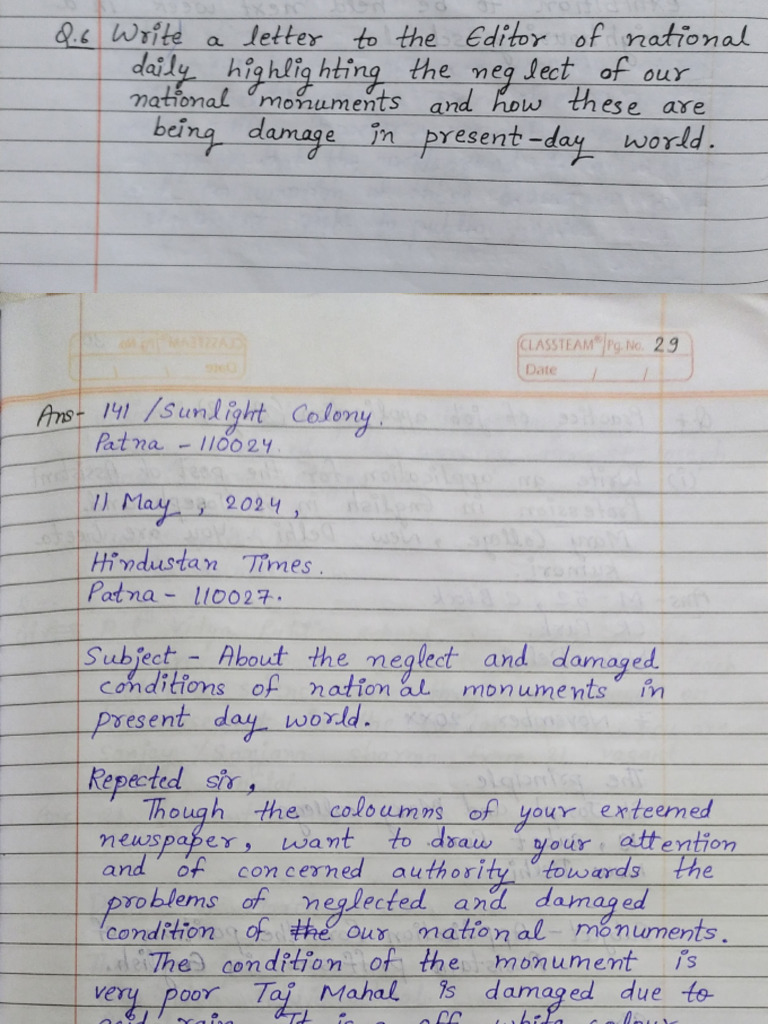 Q.6 Write a letter to the Editor of national
daily highlighting the neglect of our
national monuments and how these are
being damage in present-day world.
CLASSTEAM® Pg. No. 29
Date / /
Ans- 141 /Sunlight Colony.
Patna - 110024.
11 May, 2024,
Hindustan Times.
Patna - 110027.
Subject - About the neglect and damaged
conditions of national monuments in
present day world.
Repected sir,
Though the coloumns of your exteemed
newspaper, want to draw your attention
and of concerned authority towards the
problems of neglected and damaged
condition of the our national monuments.
The condition of the monument is
very poor Taj Mahal is damaged due to
acid rain. It is a off white colour